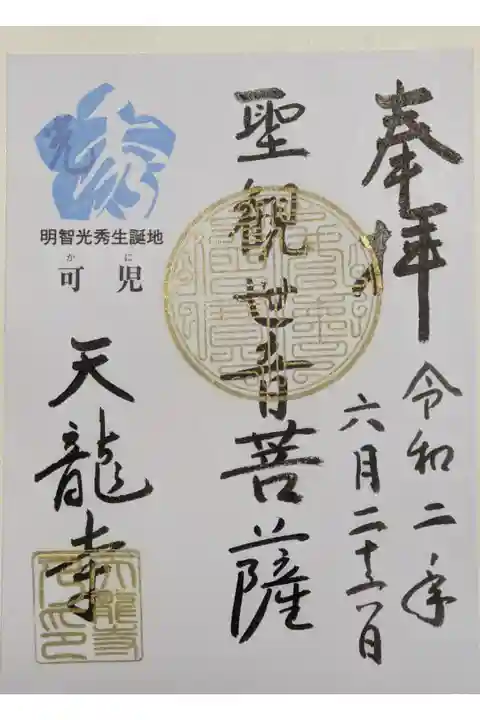 奉拝
令和二年
六月二十三日
聖観世音菩薩
光秀
明智光秀生誕地
かに
可児
天龍寺
天龍寺